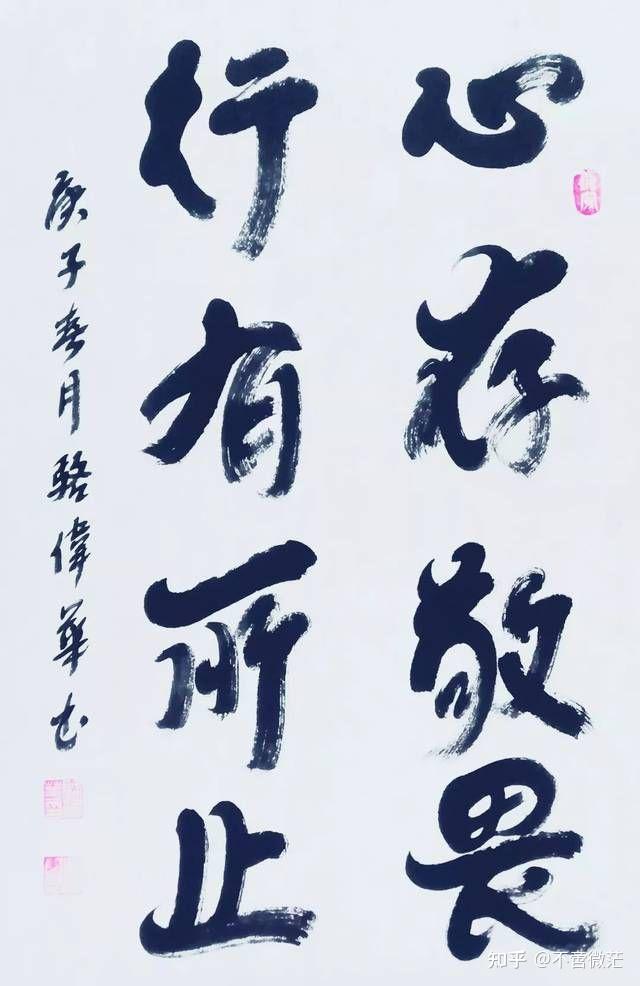 心存敬畏
行有所止
庚子春月駱偉華书
知乎 @不啬微茫